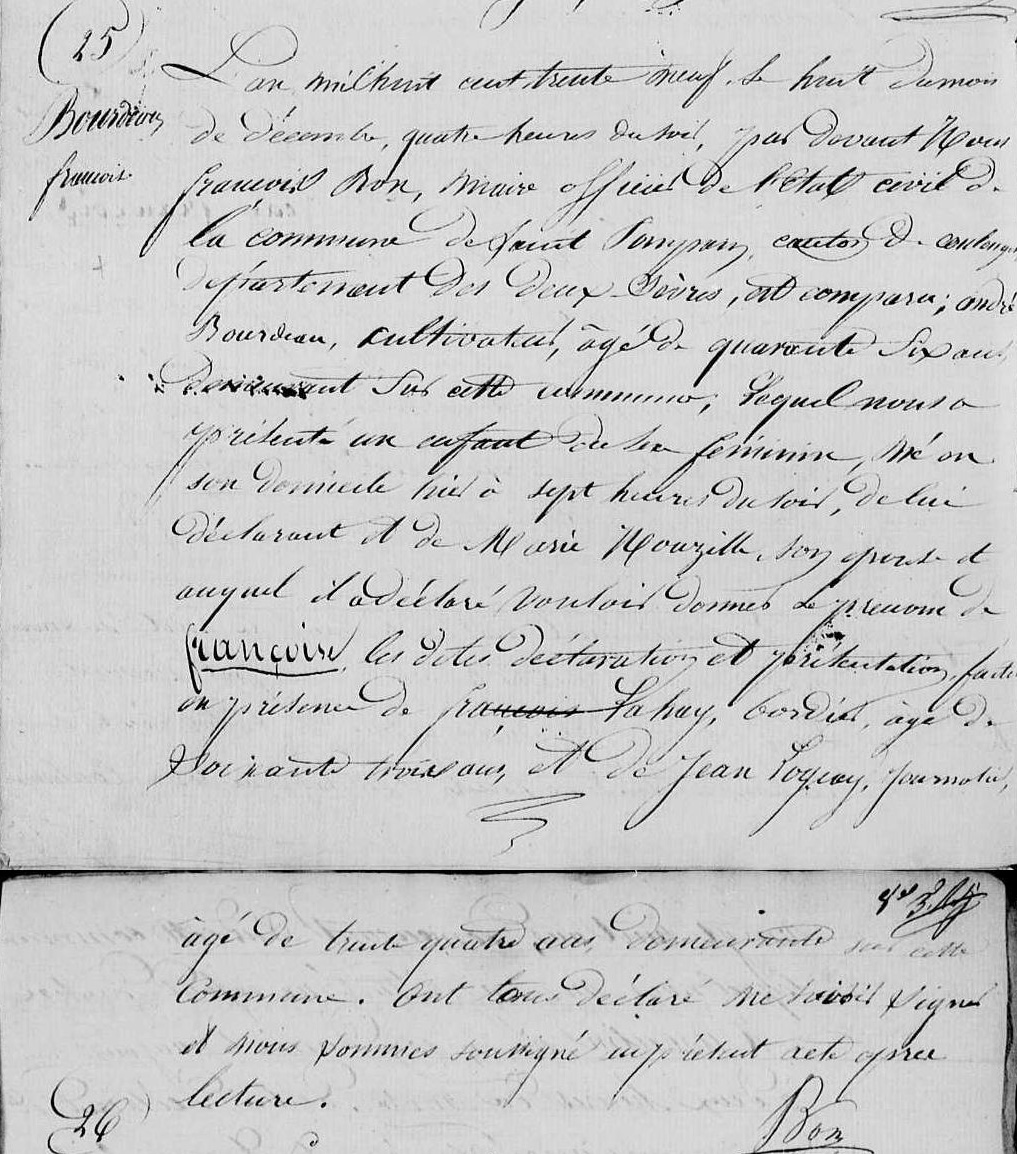 25
Bourdeau
françoise
L'an mil huit cent trente neuf, le huit du mois
de décembre, quatre heures du soir, par devant Nous
françois Bon, maire officier de l'état civil de
la commune de saint Pompain, canton de coulonges
département des deux-Sèvres, est comparu; andré
Bourdeau, cultivateur, âgé de quarante six ans,
demeurant sur cette commune; lequel nous a
présenté un enfant du sexe féminin, né en
son domicile hier à sept heures du soir, de lui
déclarant et de Marie Nouzille, son épouse et
auquel il a déclaré vouloir donner le prénom de
françoise, les dites déclaration et présentation faites
en présence de françois Lahay, bordier, âgé de
Soixante trois ans, et de Jean Loquay, journalier,
âgé de trente quatre ans, demeurants sur cette
Commune. Ont tous déclaré ne savoir signer
et nous sommes soussigné au présent acte après
lecture.
Bon
26